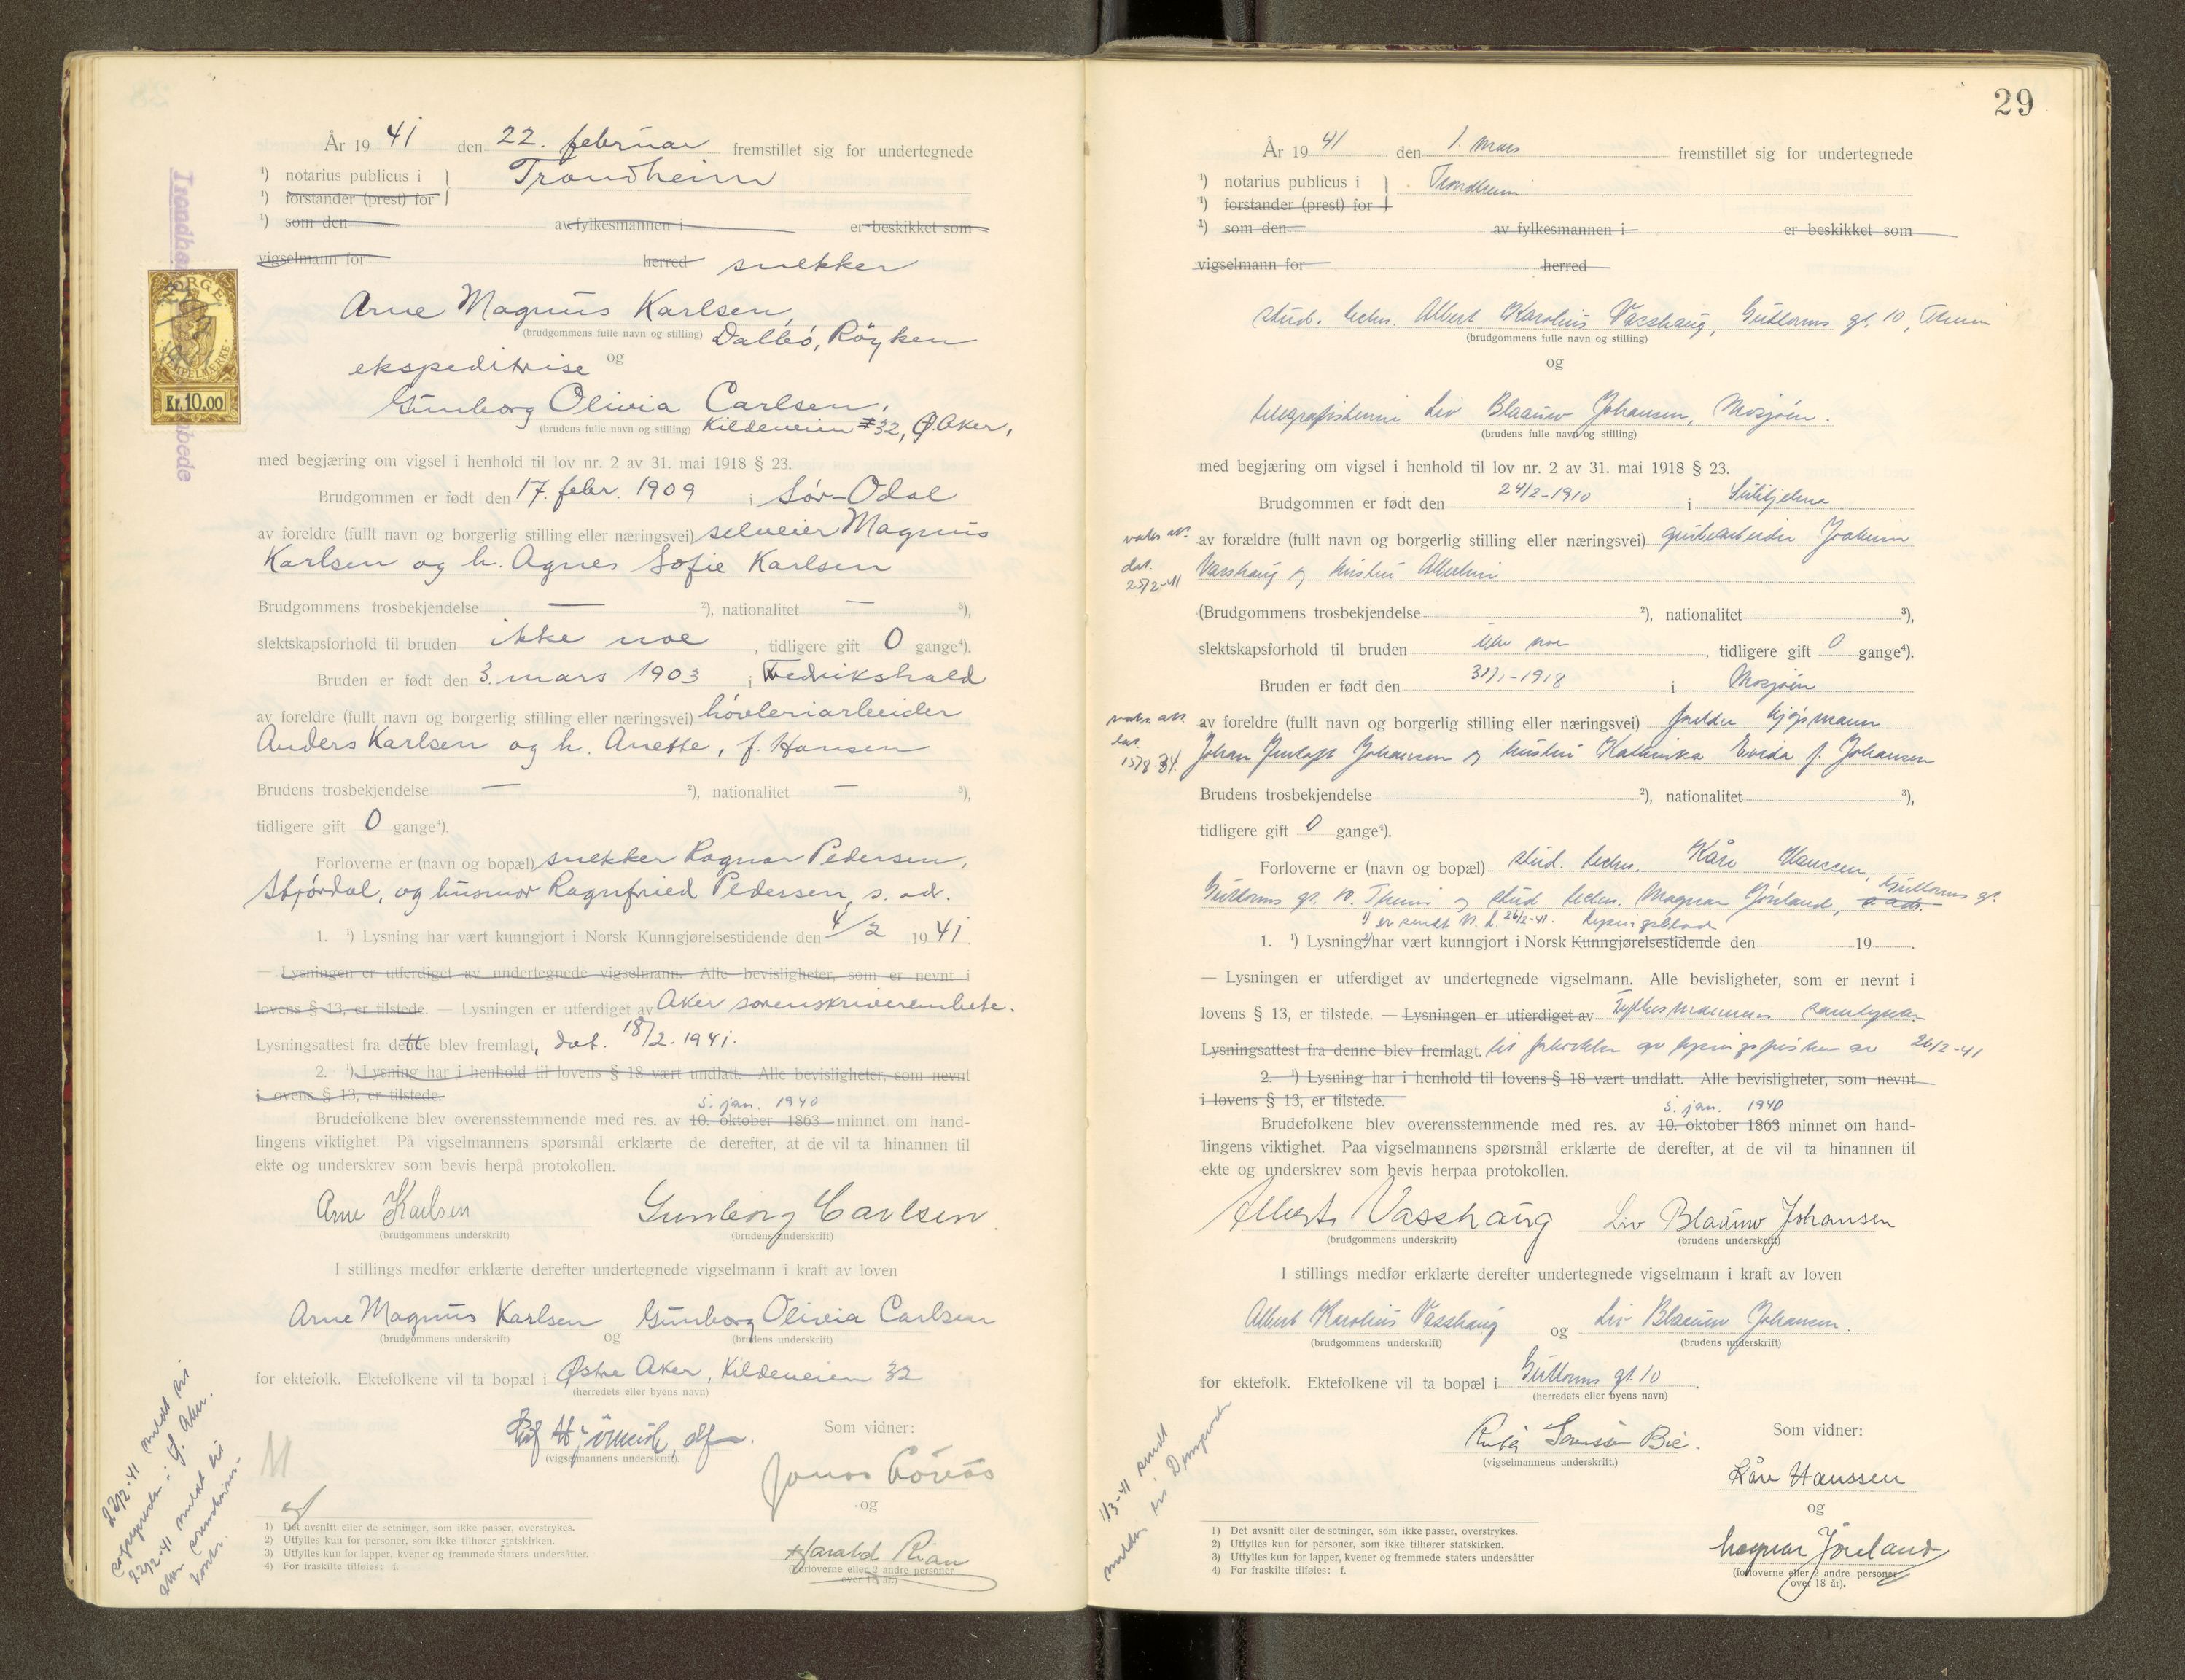 År 19 41 den 22. februar fremstillet sig for undertegnede
¹) notarius publicus i Trondheim
¹) forstander (prest) for
¹) som den av fylkesmannen i er beskikket som
vigselmann for herred snekker
Arne Magnus Karlsen,
(brudgommens fulle navn og stilling) Dalbo, Röyken
ekspeditrise og
Gunborg Olivia Carlsen,
(brudens fulle navn og stilling) Kildeveien 32, Ø. Aker,
med begjæring om vigsel i henhold til lov nr. 2 av 31. mai 1918 § 23.
Brudgommen er født den 17. febr. 1909 i Sör-Odal
av foreldre (fullt navn og borgerlig stilling eller næringsvei) selveier Magnus
Karlsen og h. Agnes Sofie Karlsen
Brudgommens trosbekjendelse — ²), nationalitet — ³),
slektskapsforhold til bruden ikke noe, tidligere gift 0 gange⁴).
Bruden er født den 3. mars 1903 i Fredrikshald
av foreldre (fullt navn og borgerlig stilling eller næringsvei) hövleriarbeider
Anders Karlsen og h. Anette, f. Hansen
Brudens trosbekjendelse — ²), nationalitet — ³),
tidligere gift 0 gange⁴).
Forloverne er (navn og bopæl) snekker Ragnar Pedersen,
Stjördal, og husmor Ragnfried Pedersen, s. ad.
1. ¹) Lysning har vært kunngjort i Norsk Kunngjørelsestidende den 4/2 1941.
— Lysningen er utferdiget av undertegnede vigselmann. Alle bevisligheter, som er nevnt i
lovens § 13, er tilstede. — Lysningen er utferdiget av Aker sorenskriverembete.
Lysningsattest fra dette blev fremlagt, dat. 18/2. 1941.
2. ¹) Lysning har i henhold til lovens § 18 vært undlatt. Alle bevisligheter, som nevnt
i lovens § 13, er tilstede.
5. jan. 1940
Brudefolkene blev overensstemmende med res. av 10. oktober 1863 minnet om hand-
lingens viktighet. På vigselmannens spørsmål erklærte de derefter, at de vil ta hinannen til
ekte og underskrev som bevis herpå protokollen.
Arne Karlsen Gunborg Carlsen.
(brudgommens underskrift) (brudens underskrift)
I stillings medfør erklærte derefter undertegnede vigselmann i kraft av loven
Arne Magnus Karlsen og Gunborg Olivia Carlsen
(brudgommens underskrift) (brudens underskrift)
for ektefolk. Ektefolkene vil ta bopæl i Østre Aker, Kildeveien 32
(herredets eller byens navn)
Som vidner:
(vigselmannens underskrift).
Jonas
og
Harald Rian
(forloverne eller 2 andre personer
over 18 år.)
1) Det avsnitt eller de setninger, som ikke passer, overstrykes.
2) Utfylles kun for personer, som ikke tilhører statskirken.
3) Utfylles kun for lapper, kvener og fremmede staters undersåtter.
4) For fraskilte tilføies: f.
22/2-41 meldt til
sogneprest i Ø. Aker.
22/2-41 meldt til
Aker sorenskriver-
kontor.
NORGE
STEMPELMERKE
Kr. 10.00
29
År 19 41 den 1. mars fremstillet sig for undertegnede
¹) notarius publicus i Trondheim
¹) forstander (prest) for
¹) som den av fylkesmannen i er beskikket som
vigselmann for herred
stud. techn. Albert Karolius Vasshaug, Guttorms gt. 10, Theim
(brudgommens fulle navn og stilling)
og
telegrafistinne Liv Blaauw Johansen, Mosjöen.
(brudens fulle navn og stilling)
med begjæring om vigsel i henhold til lov nr. 2 av 31. mai 1918 § 23.
Brudgommen er født den 24/2-1910 i Sulitjelma
av forældre (fullt navn og borgerlig stilling eller næringsvei) grubearbeider Joakim
Vasshaug og hustru Albertine
(Brudgommens trosbekjendelse ²), nationalitet ³),
slektskapsforhold til bruden ikke noe, tidligere gift 0 gange⁴).
Bruden er født den 31/1-1918 i Mosjöen
av foreldre (fullt navn og borgerlig stilling eller næringsvei) foreldre kjöpmann
Johan Johansen og hustru Kathinka f. Johansen
Brudens trosbekjendelse ²), nationalitet ³),
tidligere gift 0 gange⁴).
Forloverne er (navn og bopæl) stud. techn. Kåre Hanssen,
Guttorms gt. 10. Theim og stud techn. Magnar Jöreland, s. ads. Guttorms gt.
¹) er sendt N. L. 26/2-41. lysningsblad
1. ¹) Lysning har vært kunngjort i Norsk Kunngjørelsestidende den 19 .
— Lysningen er utferdiget av undertegnede vigselmann. Alle bevisligheter, som er nevnt i
lovens § 13, er tilstede. — Lysningen er utferdiget av Fylkesmannens samtykke
Lysningsattest fra denne blev fremlagt. til av lysningsfristen av 26/2-41
2. ¹) Lysning har i henhold til lovens § 18 vært undlatt. Alle bevisligheter, som nevnt
i lovens § 13, er tilstede.
5. jan. 1940
Brudefolkene blev overensstemmende med res. av 10. oktober 1863 minnet om hand-
lingens viktighet. Paa vigselmannens spørsmål erklærte de derefter, at de vil ta hinannen til
ekte og underskrev som bevis herpaa protokollen.
Albert Vasshaug Liv Blaauw Johansen
(brudgommens underskrift) (brudens underskrift)
I stillings medfør erklærte derefter undertegnede vigselmann i kraft av loven
Albert Karolius Vasshaug og Liv Blaauw Johansen.
(brudgommens underskrift) (brudens underskrift)
for ektefolk. Ektefolkene vil ta bopæl i Guttorms gt. 10.
(herredets eller byens navn)
Som vidner:
(vigselmannens underskrift.)
Kåre Hanssen
og
Magnar Jöreland
(forloverne eller 2 andre personer
over 18 år).
1) Det avsnitt eller de setninger, som ikke passer, overstrykes.
2) Utfylles kun for personer, som ikke tilhører statskirken.
3) Utfylles kun for lapper, kvener og fremmede staters undersåtter
4) For fraskilte tilføies: f.
dat.
25/2-41
dat.
15/8-34.
1/3-41 sendt
melding til Domprosten